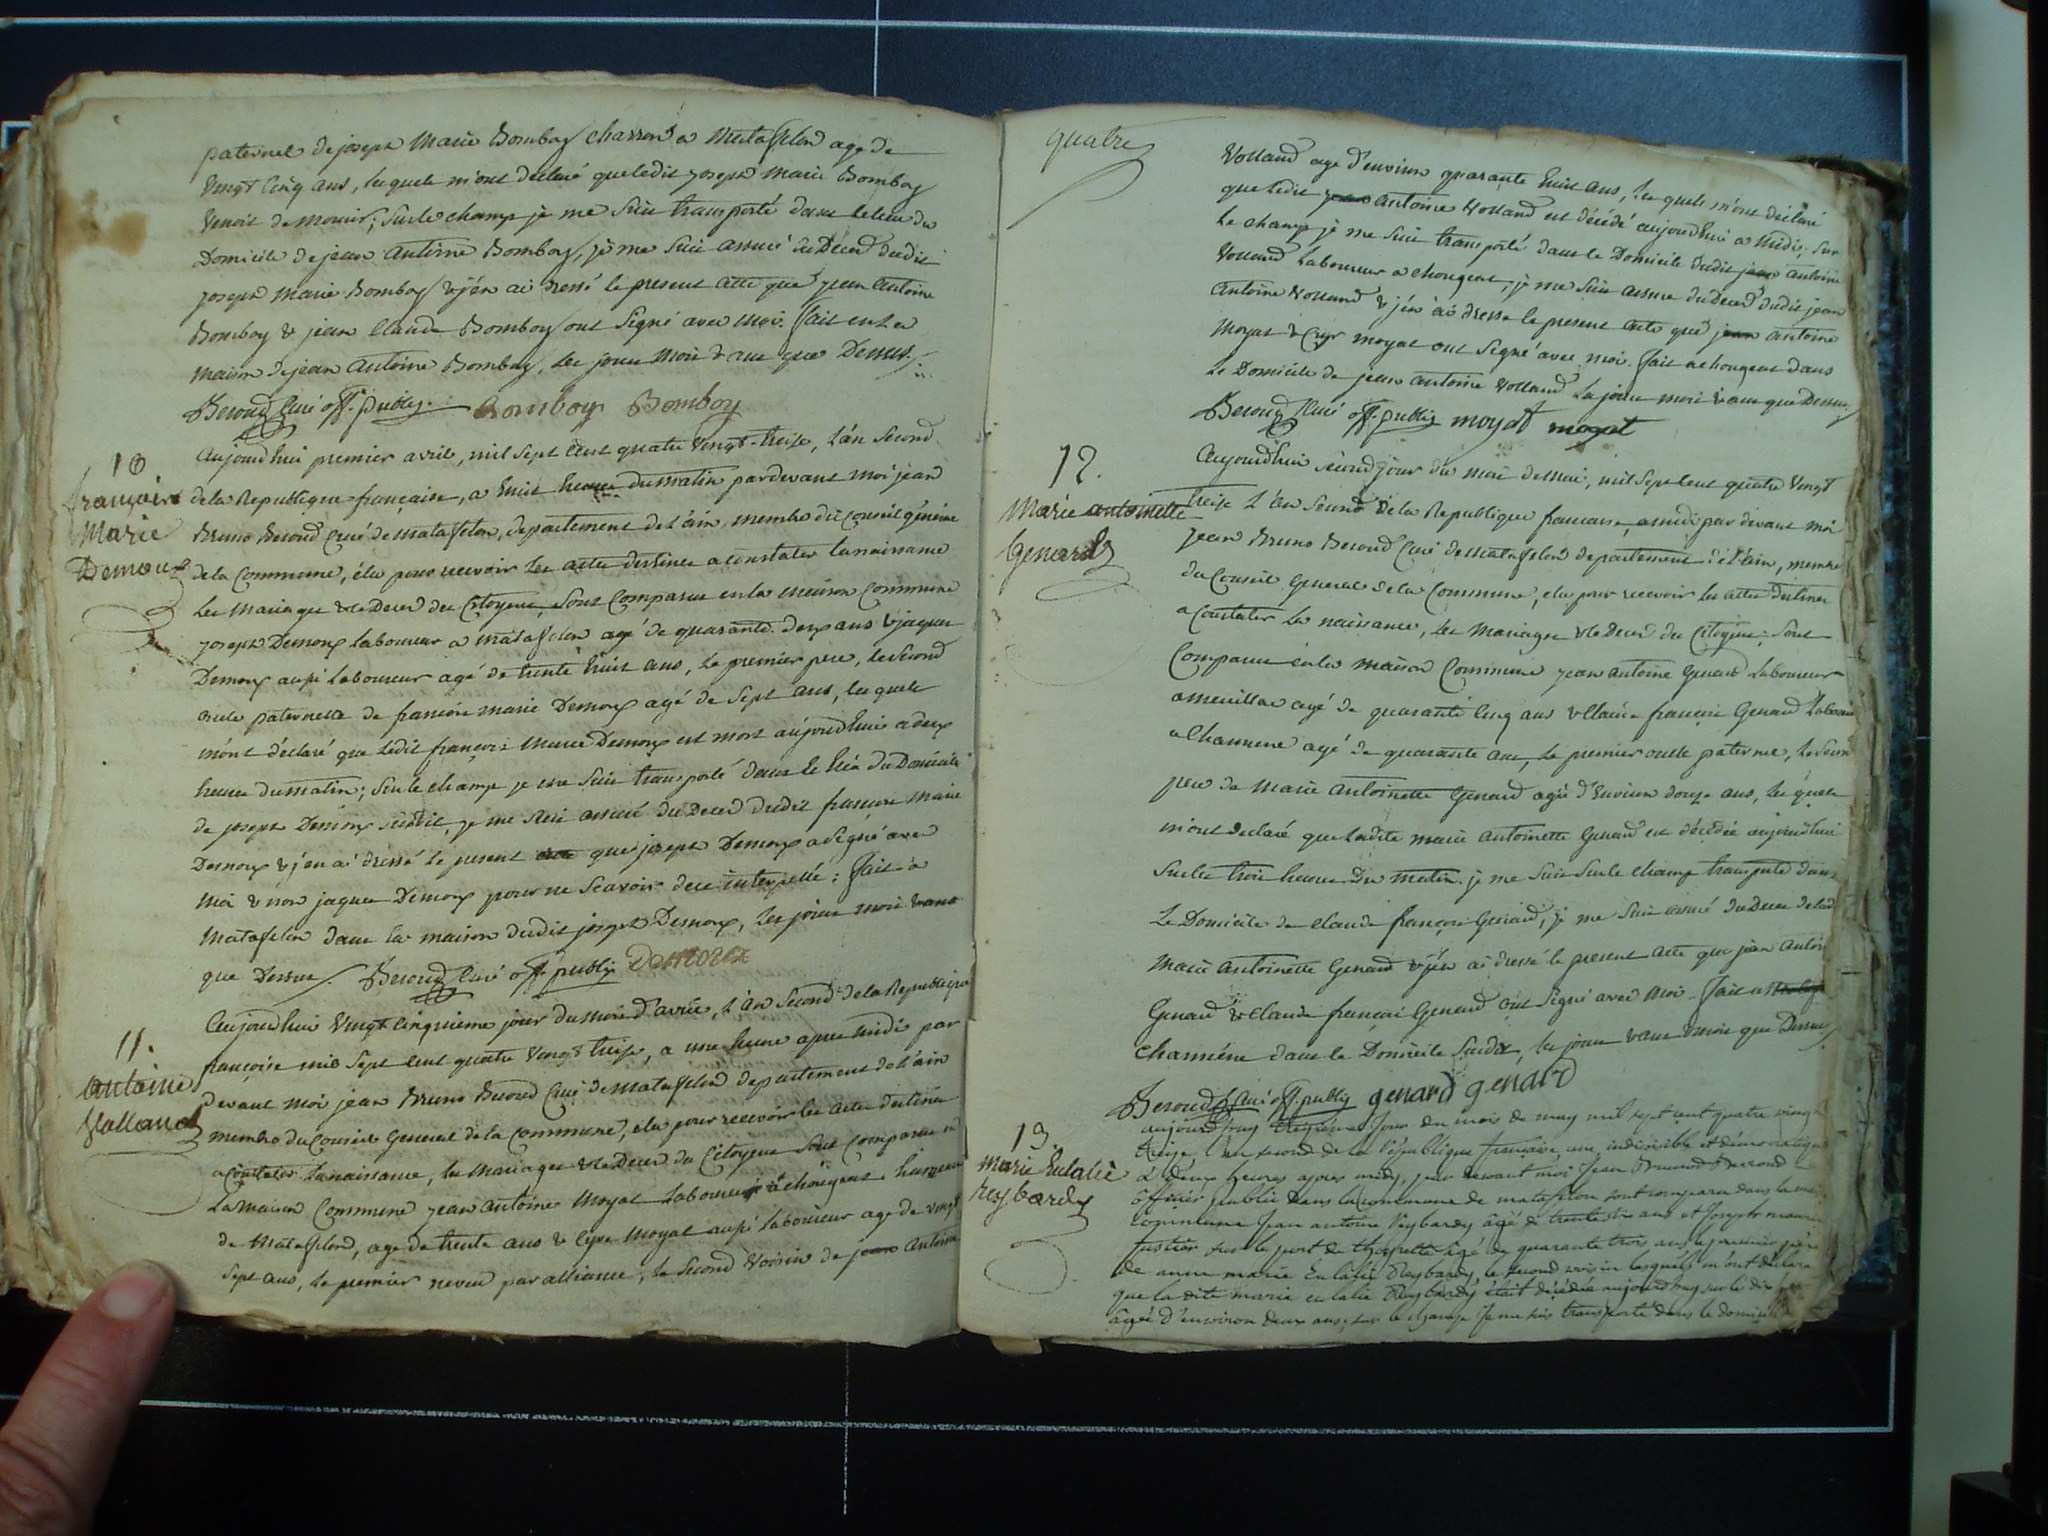 paternel de joseph Marie Bomboy charron a Matafelon age de
vingt cinq ans, lesquels m'ont declaré que ledit joseph Marie Bomboy
venoit de mourir; sur le champ je me suis transporté dans le lieu du
Domicile de jean antoine Bomboy, je me suis assuré du Deced dudit
joseph Marie Bomboy & j'en ai dressé le present acte que jean antoine
Bomboy & jean Claude Bomboy ont signé avec moi. fait en la
maison de jean antoine Bomboy, les jour mois & an que Dessus
Beroud Curé off. public Bomboy Bomboy
10
françois
Marie
Demoux
aujourd'hui premier avril, mil sept cent quatre vingt treise, l'an second
de la Republique française, a huit heures du matin par devant moi jean
Bruno Beroud Curé de Matafelon, departement de l'ain, membre du conseil general
de la Commune, élu pour recevoir les actes destinés a constater la naissance
les Mariages & le Deces des Citoyens, sont comparus en la maison commune
joseph Demoux laboureur a Matafelon agé de quarante deux ans & jaques
Demoux aussi laboureur agé de trente huit ans, le premier pere, le second
oncle paternelle de françois marie Demoux agé de sept ans, lesquels
m'ont déclaré que ledit françois Marie Demoux est mort aujourd'hui a deux
heures du matin; sur le champ je me suis transporté dans le lieu du Domicile
de joseph Demoux susdit, je me suis assuré du Deced dudit françois Marie
Demoux & j'en ai dressé le present acte que joseph Demoux a signé avec
moi & non jaques Demoux pour ne sçavoir de ce interpellé; fait a
Matafelon dans la maison dudit joseph Demoux, les jour mois & ans
que Dessus. Beroud Curé off. public Demoux
11.
antoine
Valland
Aujourd'hui vingt cinquieme jour du mois d'avril, l'an second de la Republique
françoise mil sept cent quatre vingt treise, a une heure apres midi par
devant moi jean Bruno Beroud Curé de Matafelon departement de l'ain
membre du Conseil General de la Commune, elu pour recevoir les actes destinés
a constater la naissance, les Mariages & le Deces des Citoyens sont comparus en
la maison Commune jean antoine Moyat laboureur a chougeat hameau
de Matafelon, age de trente ans & Cyr Moyat aussi laboureur age de vingt
sept ans, le premier neveu par alliance, le second voisin de jean antoine
quatre
Volland age d'environ quarante huit ans, lesquels m'ont déclaré
que ledit jean antoine Volland est décédé aujourd'hui a midi; sur
le champ je me suis transporté dans le Domicile dudit jean antoine
Volland laboureur a chougeat, je me suis assuré du Deced dudit jean
antoine Volland & j'en ai dressé le present acte que jean antoine
Moyat & Cyr moyat ont signé avec moi. fait a chougeat dans
le Domicile de jean antoine Volland les jour mois & an que Dessus
Beroud Curé off. public moyat moyat
12.
Marie antoinette
Genard
Aujourd'hui second jour du mois de Mai, mil sept cent quatre vingt
treise l'an second de la Republique francaise, a midi par devant moi
jean Bruno Beroud Curé de Matafelon departement de l'ain, membre
du Conseil General de la Commune, elu pour recevoir les actes destinés
a Constater la naissance, les Mariages & le Deced des Citoyens; sont
Comparus en la maison Commune jean antoine Genard laboureur
a agé de quarante cinq ans & Claude françois Genard laboureur
a Chamene agé de quarante ans, le premier oncle paternel, le second
pere de Marie antoinette Genard agée d'environ douze ans, lesquels
m'ont declaré que ladite marie antoinette Genard est décédée aujourd'hui
sur les trois heures du matin. je me suis sur le champ transporté dans
le Domicile de Claude françois Genard, je me suis assuré du Deces de lad
Marie antoinette Genard & j'en ai dressé le present acte que jean antoine
Genard & Claude françois Genard ont signé avec moi. fait a
chamêne dans le Domicile susdit, les jour & an & mois que Dessus
Beroud Curé off. public genard genard
13
Marie Eulalie
reybardy
aujourd'huy treizieme jour du mois de may mil sept cent quatre vingt
treize l'an second de la république française une indivisible et démocratique
à deux heures apres midy, par devant moi Jean Bruno Beroud
officier public dans la commune de matafelon sont comparus dans la maison
commune Jean antoine Reybardy âgé de trente ans et Joseph marie
sur le port de agé de quarante trois ans le premier père
de anne marie Eulalie Reybardy le second voisin lesquels m'ont déclaré
que la dite marie eulalie Reybardy était décédée aujourd'huy sur le dix
âgée d'environ deux ans, sur le champ Je me suis transporté dans le domicile